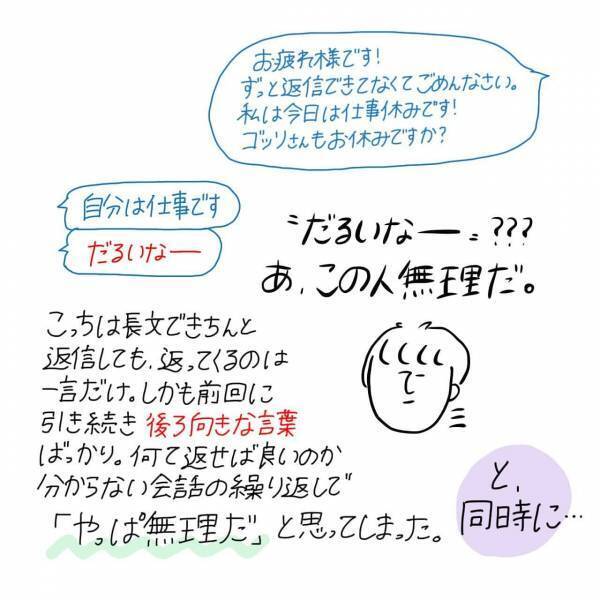 お疲れ様です!
ずっと返信できてなくてごめんなさい。
私は今日は仕事休みです!
ゴッリさんもお休みですか?
自分は仕事です
だるいなー
"だるいなー"???
あ、この人無理だ。
こっちは長文できちんと
返信しても、返ってくるのは
一言だけ。しかも前回に
引き続き後ろ向きな言葉
ばっかり。何て返せば良いのか
分からない会話の繰り返しで
「やっぱ無理だ」と思ってしまった。
と、
同時に…